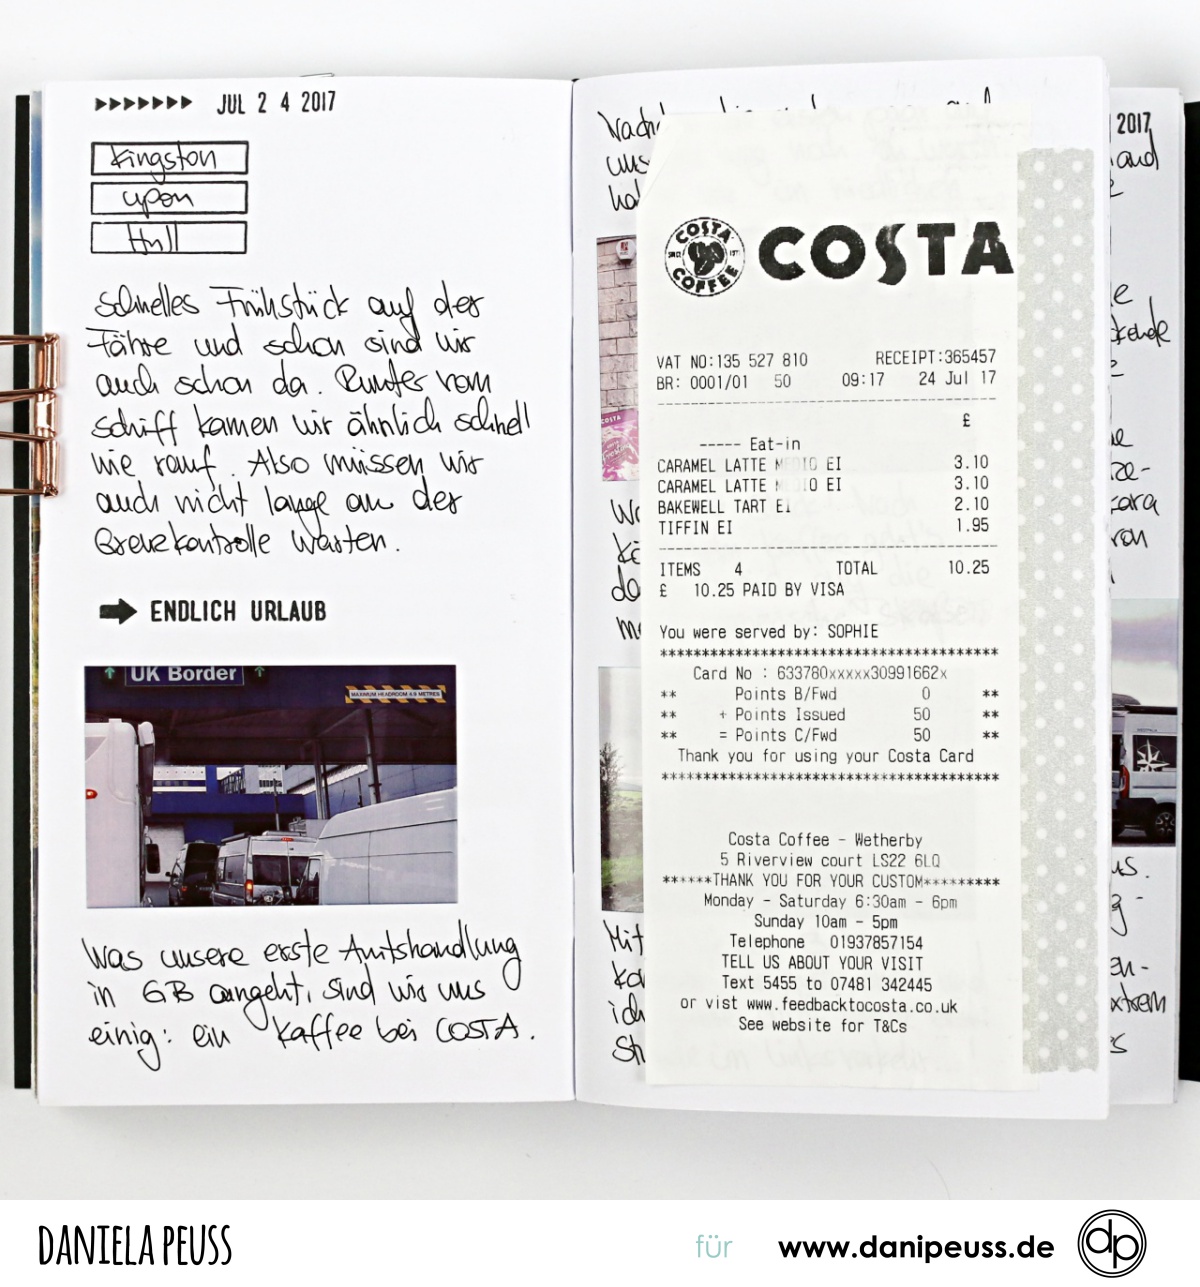 JUL 2 4 2017
Kingston
upon
Hull
Schnelles Frühstück auf der
Fähre und schon sind wir
auch schon da. Runter vom
Schiff kamen wir ähnlich schnell
wie rauf. Also müssen wir
auch nicht lange an der
Grenzkontrolle warten.
ENDLICH URLAUB
UK Border
MAXIMUM HEADROOM 4.9 METRES
Was unsere erste Amtshandlung
in GB angeht, sind wir uns
einig: ein Kaffee bei COSTA.
2017
COSTA
COSTA
SINCE 1971
COFFEE
COSTA
VAT NO:135 527 810 RECEIPT:365457
BR: 0001/01 50 09:17 24 Jul 17
£
----- Eat-in
CARAMEL LATTE MEDIO EI 3.10
CARAMEL LATTE MEDIO EI 3.10
BAKEWELL TART EI 2.10
TIFFIN EI 1.95
ITEMS 4 TOTAL 10.25
£ 10.25 PAID BY VISA
You were served by: SOPHIE
*****************************************
Card No : 633780xxxxx30991662x
** Points B/Fwd 0 **
** + Points Issued 50 **
** = Points C/Fwd 50 **
Thank you for using your Costa Card
*****************************************
Costa Coffee - Wetherby
5 Riverview court LS22 6LQ
******THANK YOU FOR YOUR CUSTOM*********
Monday - Saturday 6:30am - 6pm
Sunday 10am - 5pm
Telephone 01937857154
TELL US ABOUT YOUR VISIT
Text 5455 to 07481 342445
or vist www.feedbacktocosta.co.uk
See website for T&Cs
DANIELA PEUSS
für www.danipeuss.de
dp